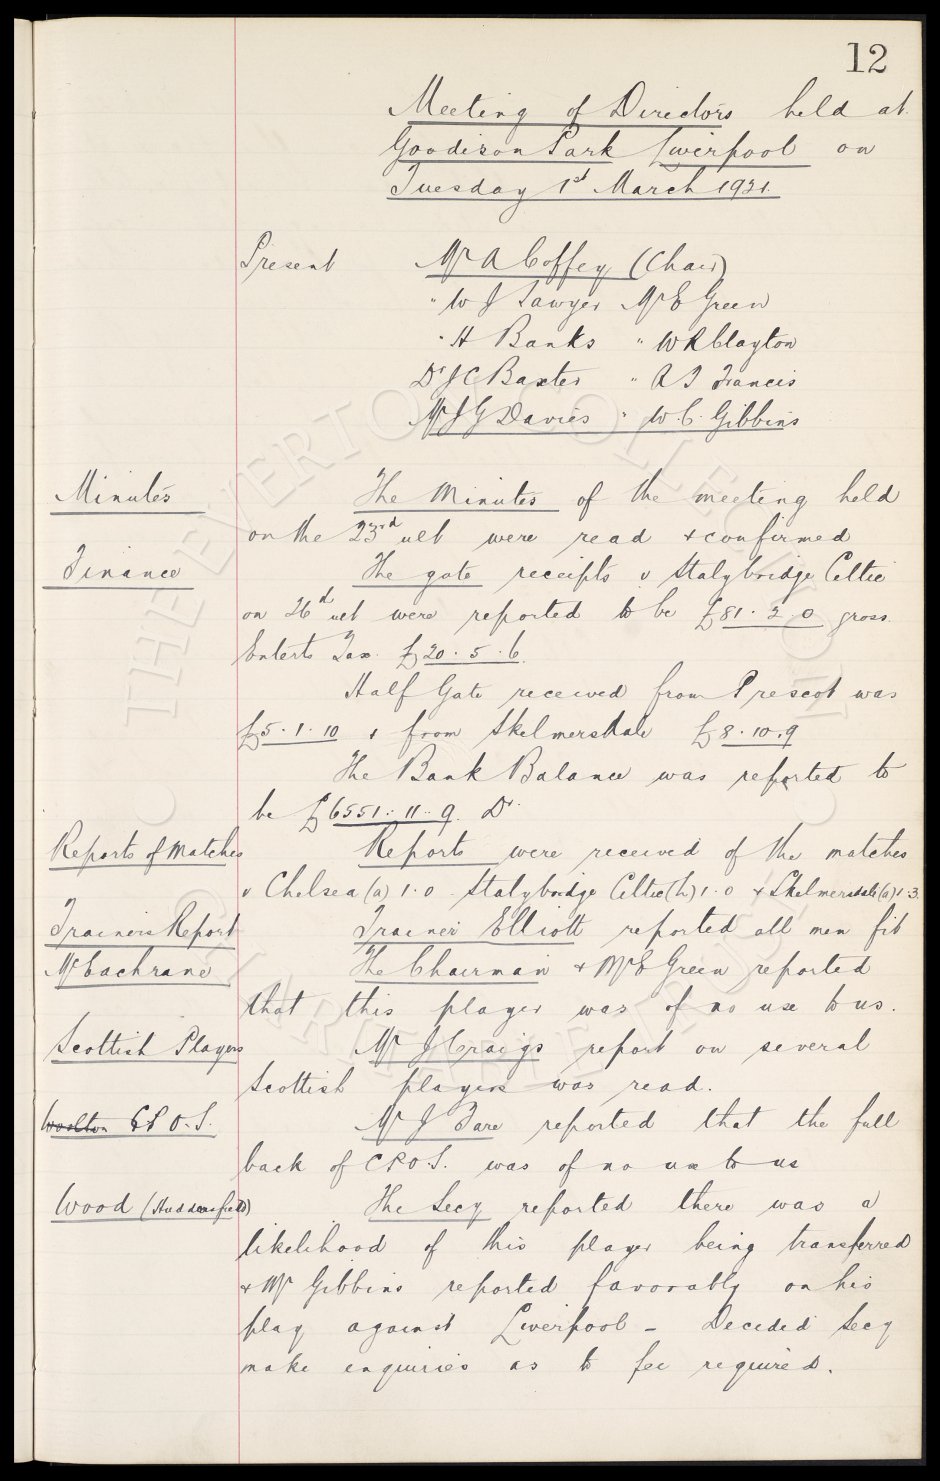 12
Meeting of Directors held at
Goodison Park Liverpool on
Tuesday 1st March 1921.
Present Mr A Coffey (Chair)
" W J Sawyer Mr E Green
" H Banks " W R Clayton
Dr J C Baxter " A T Francis
Mr J G Davies " W. C. Gibbins
Minutes The Minutes of the meeting held
on the 23rd ult were read & confirmed
Finance The gate receipts v Stalybridge Celtic
on 26d ult were reported to be £81. 2 0 gross
Enterts Tax £20. 5. 6.
Half Gate received from Prescot was
£5. 1. 10 & from Skelmersdale £8. 10. 9
The Bank Balance was reported to
be £6551. 11. 9. Dr.
Reports of Matches Reports were received of the matches
v Chelsea (a) 1.0 Stalybridge Celtic (h) 1.0 & Skelmersdale (a) 1.3.
Trainers Report Trainer Elliott reported all men fit
McEachrane The Chairman & Mr E Green reported
that this player was of no use to us.
Scottish Players Mr J Craigs report on several
Scottish players was read.
Woolton C P O. S. Mr J Fare reported that the full
back of C P O S. was of no use to us
Wood (Huddersfield) The Secy reported there was a
likelihood of this player being transferred
& Mr Gibbins reported favorably on his
play against Liverpool - Decided Secy
make enquiries as to fee required.
THE EVERTON COLLECTION
CHARITABLE TRUST